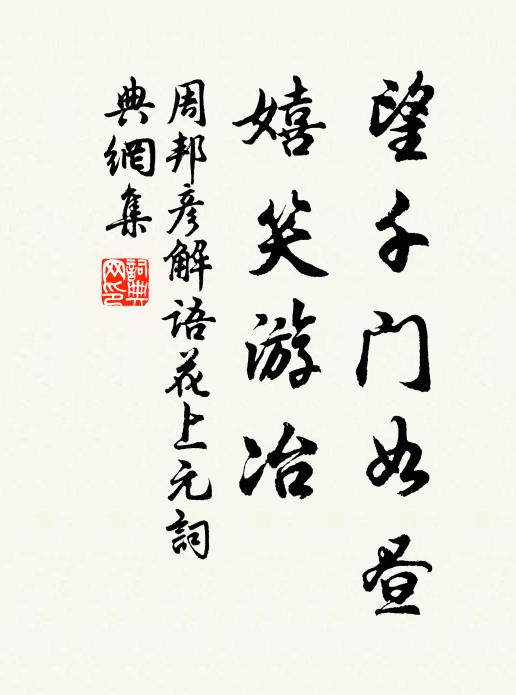 望千门如昼
嬉笑游冶
周邦彦解語花上元詞
典網集
詞典网印